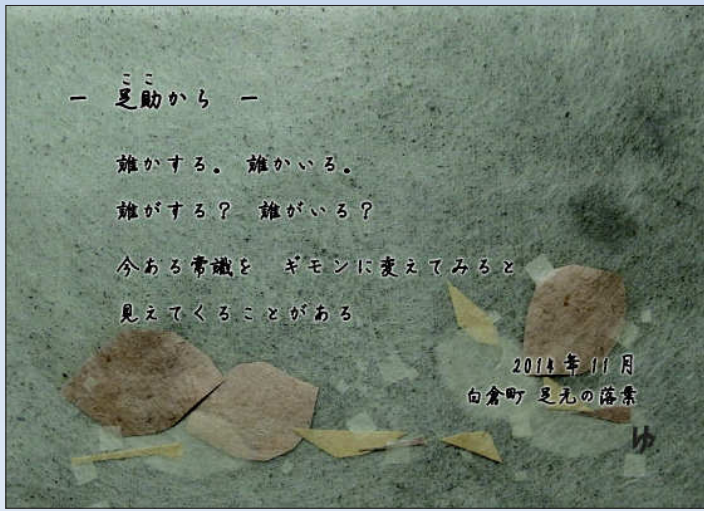 ー 足助から ー
ここ
誰かする。 誰かいる。
誰がする? 誰がいる?
今ある常識を ギモンに変えてみると
見えてくることがある
2014年11月
白倉町 足元の落葉
ゆ